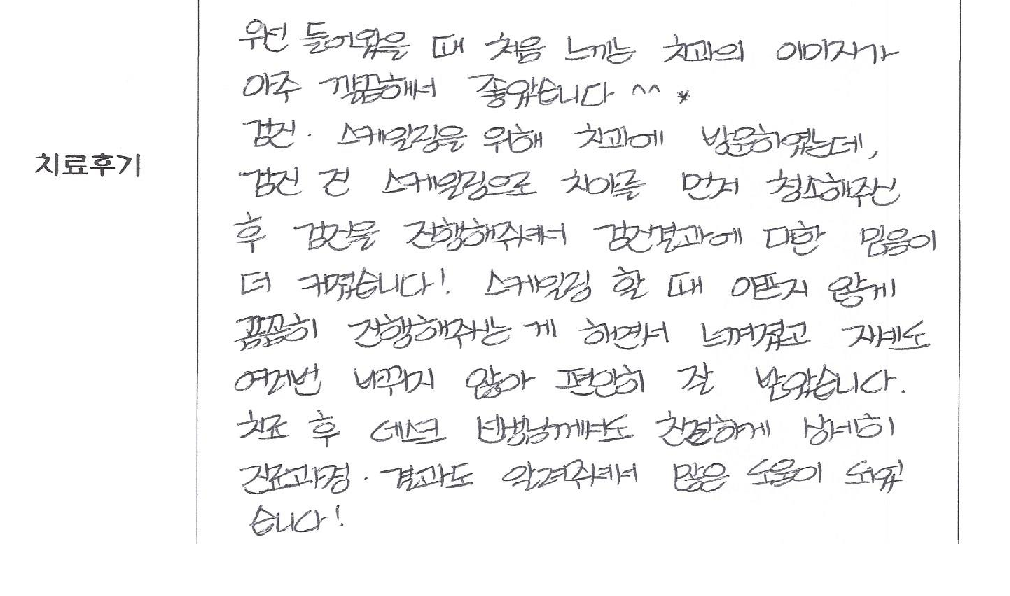 우선 들어왔을 때 처음 느끼는 치과의 이미지가
아주 깔끔해서 좋았습니다 ^^ *
검진. 스케일링을 위해 치과에 방문하였는데,
치료후기
검진 전 스케일링으로 치아를 먼저 청소해주신
후 검진을 진행해주셔서 검진결과에 대한 믿음이
더 커졌습니다! 스케일링 할 때 아프지 않게
꼼꼼히 진행해주시는 게 하면서 느껴졌고 자세도
여러번 바꾸지 않아 편안히 잘 받았습니다.
치료 후 데스크 선생님께서도 친절하게 상세히
진료과정. 결과도 알려주셔서 많은 도움이 되었
습니다!